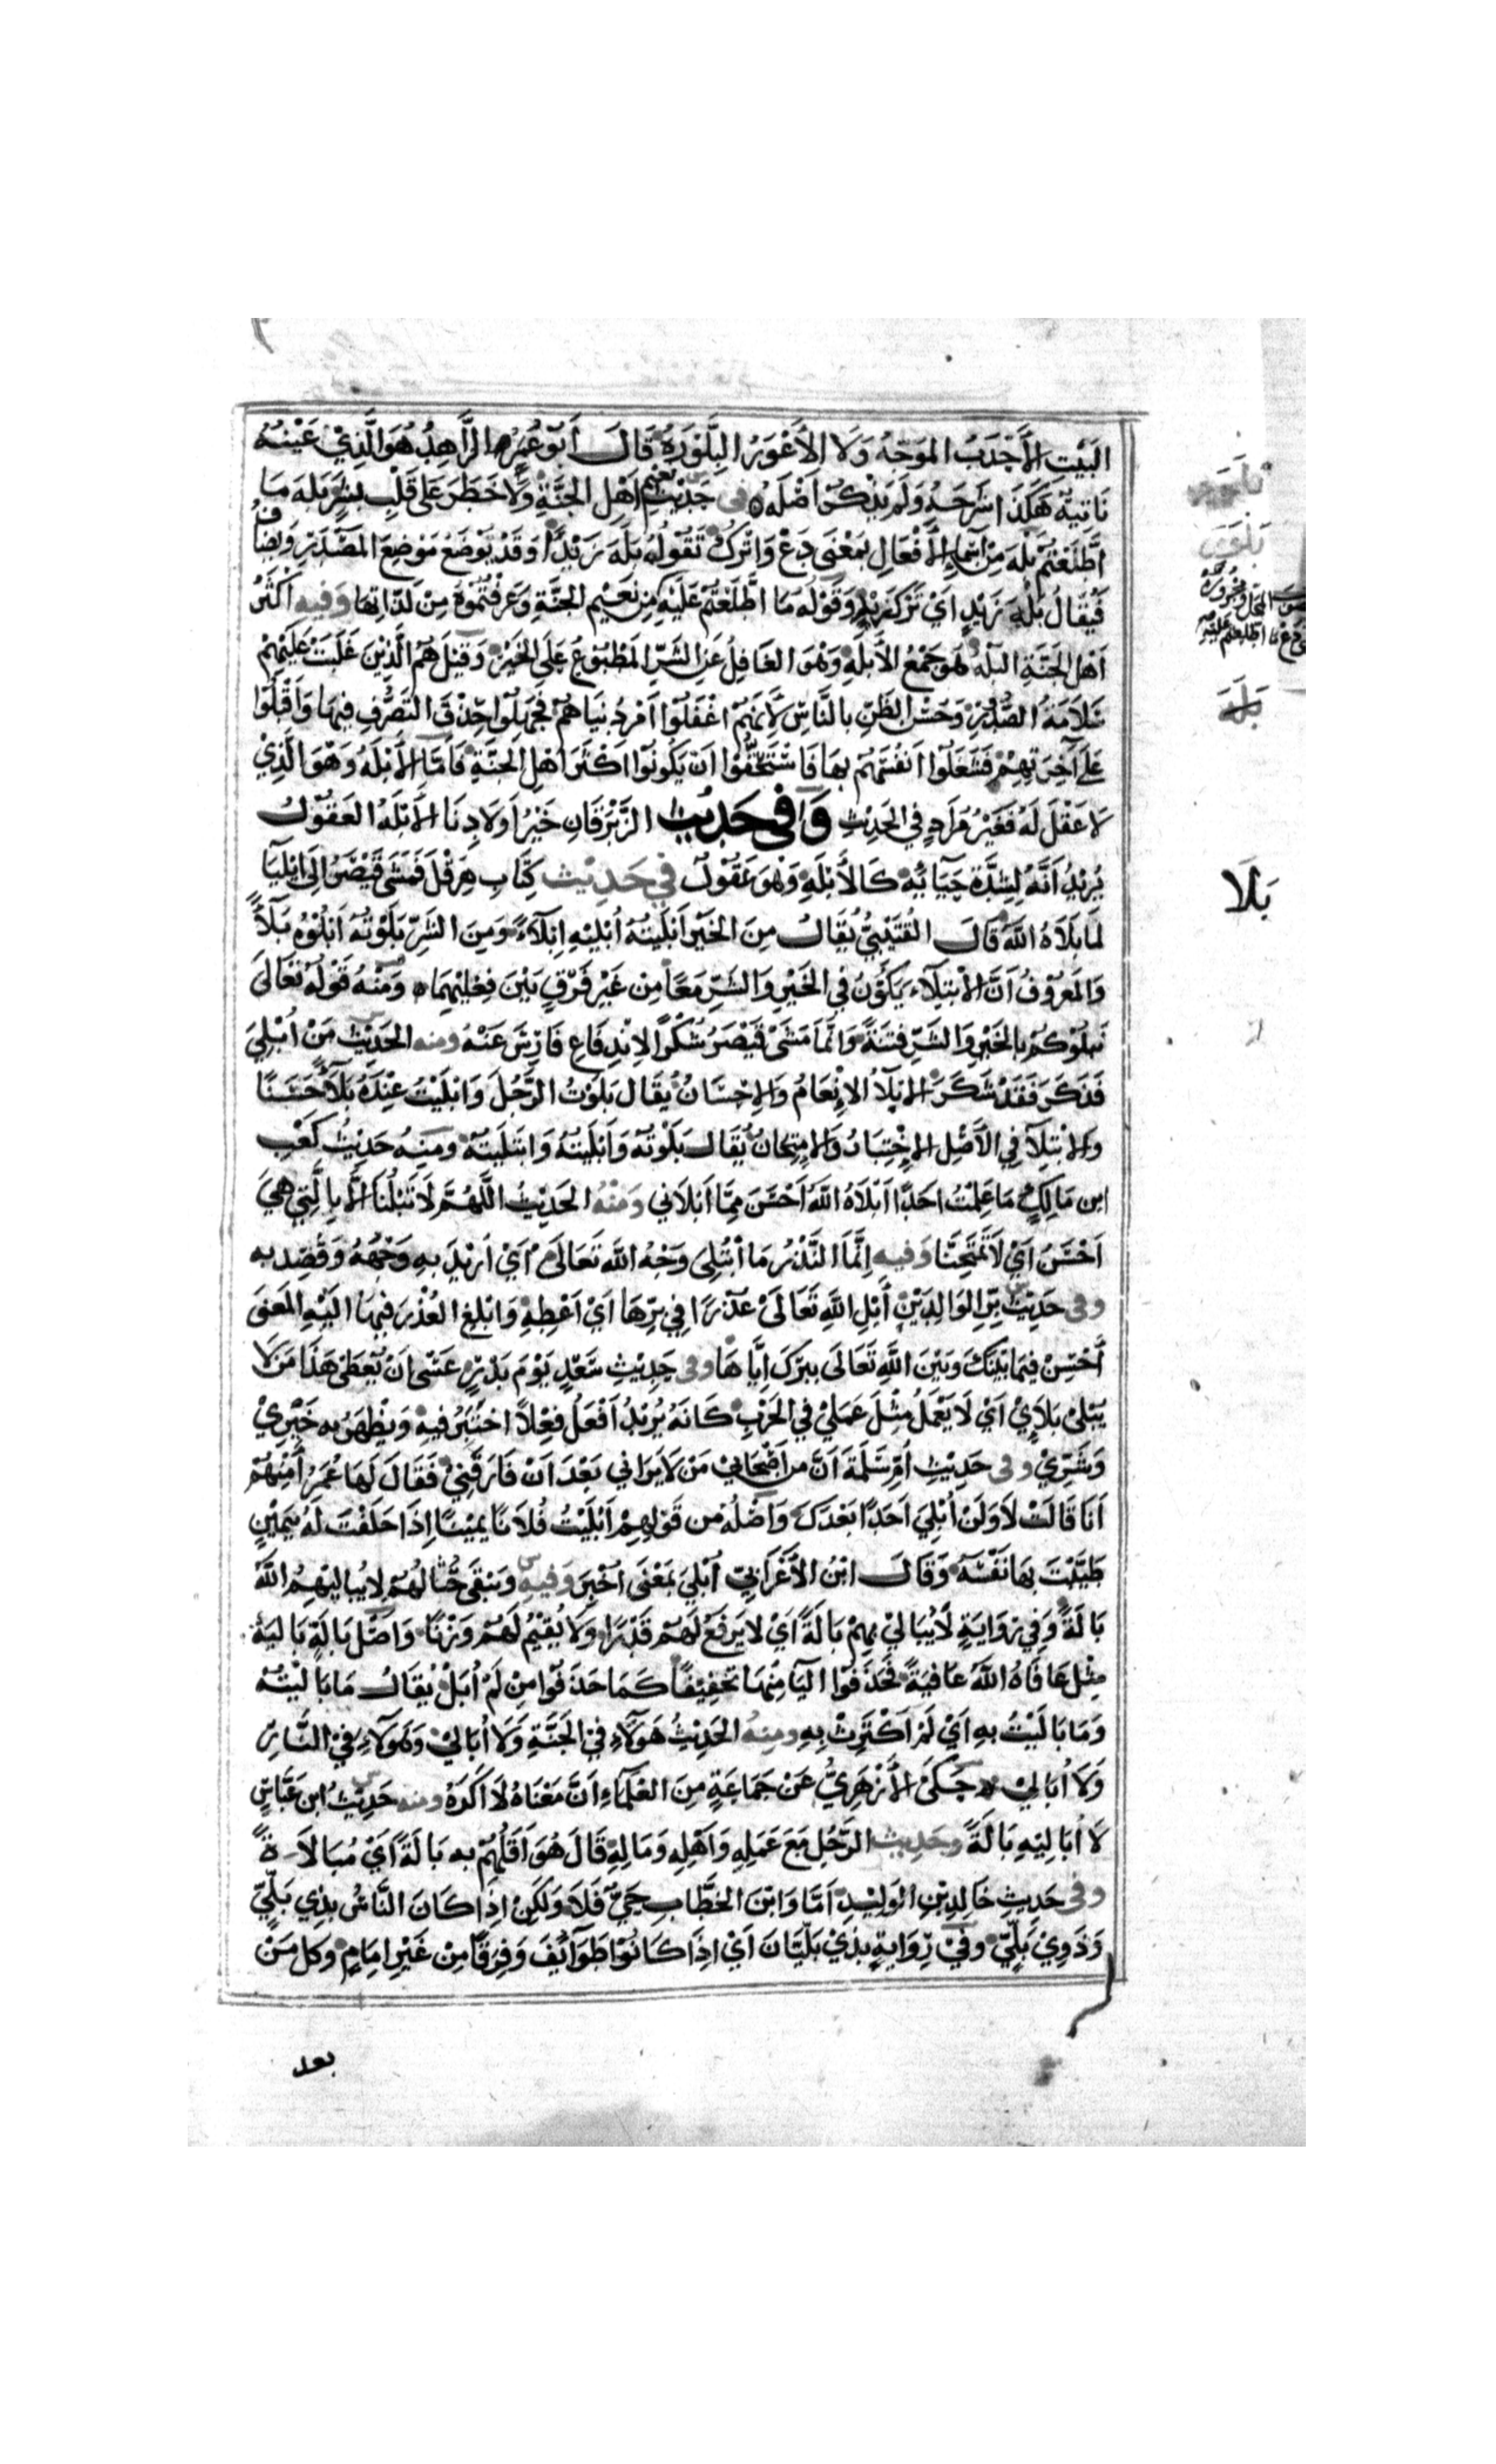 البَيْتِ الأَحْدَبُ المُوَجَّهُ وَلَا الأَعْوَرُ البِلَّوْرَةُ قَالَ أَبُو عُمَرَ الزَّاهِدُ هُوَ الَّذِيْ عَيْنُهُ
نَاتِيَةٌ هَكَذَا شَرَحَهُ وَلَمْ يَذْكُرْ أَصْلَهُ في حَدِيْثِ نَعِيم أَهْلِ الجَنَّةِ وَلَا خَطَرَ عَلَى قَلْبِ بَشَرٍ بَلْهَ مَا
اطَّلَعْتُمْ بَلْهَ مِنْ أَسْمَاءِ الأَفْعَالِ بِمَعْنَى دَعْ وَاتْرُكْ تَقُولُ بَلْهَ زَيْدًا وَقَدْ يُوْضَعُ مَوْضِعَ المَصْدَرِ وَيُضَافُ
فَيُقَالُ بَلْهَ زَيْدٍ أَيْ تَرْكَ زَيْدٍ وَقَوْلُهُ مَا اطَّلَعْتُمْ عَلَيْهِ مِنْ نَعِيْمِ الجَنَّةِ وَعَرَفْتُمُوْهُ مِنْ لَذَّاتِهَا وَفيهِ أَكْثَرُ
أَهْلِ الجَنَّةِ البُلْهُ هُوَ جَمْعُ الأَبْلَهِ وَهُوَ الغَافِلُ عَنِ الشَّرِّ المَطْبُوْعُ عَلَى الخَيْرِ وَقِيْلَ هُمُ الَّذِيْنَ غَلَبَتْ عَلَيْهِمْ
سَلَامَةُ الصُّدُوْرِ وَحُسْنُ الظَّنِّ بِالنَّاسِ لِأَنَّهُمْ اغْفَلُوْا أَمْرَ دُنْيَاهُمْ فَجَهِلُوْا حِذْقَ التَّصَرُّفِ فِيهَا وَاقْبَلُوْا
عَلَى آخِرَتِهِمْ فَشَغَلُوْا أَنْفُسَهُمْ بِهَا فَاسْتَحَقُّوْا أَنْ يَكُونُوْا أَكْثَرَ أَهْلِ الجَنَّةِ فَأَمَّا الأَبْلَهُ وَهُوَ الَّذِيْ
لَا عَقْلَ لَهُ فَغَيْرُ مُرَادٍ فِي الحَدِيْثِ وَفي حَدِيْثِ الزِّبْرَقَانِ خَيْرُ أَوْلَادِنَا الأَبْلَهُ العَقُوْلُ
يُرِيْدُ أَنَّهُ لِشِدَّةِ حَيَائِهِ كَالأَبْلَهِ وَهُوَ عَقُوْلٌ في حَدِيْث كِتَابِ هِرَقْلَ فَمَشَى قَيْصَرُ إِلَى إِيْلِيَا
لَمَا بَلَاهُ اللَّهُ قَالَ القُتَيْبِيُّ يُقَالُ مِنَ الخَيْرِ أَبْلَيْتُهُ أُبْلِيْهِ إِبْلَاءً وَمِنَ الشَّرِّ بَلَوْتُهُ أَبْلُوْهُ بَلَاءً
وَالمَعْرُوْفُ أَنَّ الابْتِلَاءَ يَكُوْنُ فِي الخَيْرِ وَالشَّرِّ مَعًا مِنْ غَيْرِ فَرْقٍ بَيْنَ فِعْلَيْهِمَا وَمِنْهُ قَوْلُهُ تَعَالَى
نَبْلُوْكُمْ بِالخَيْرِ وَالشَّرِّ فِتْنَةً وَإِنَّمَا مَشَى قَيْصَرُ شُكْرًا لِانْدِفَاعِ فَارِسَ عَنْهُ ومنه الحَدِيْثُ مَنْ أُبْلِيَ
فَذَكَرَ فَقَدْ شَكَرَ الإِبْلَاءُ الإِنْعَامُ وَالإِحْسَانُ يُقَالُ بَلَوْتُ الرَّجُلَ وَابْلَيْتُ عِنْدَهُ بَلَاءً حَسَنًا
وَالابْتِلَاءُ فِي الأَصْلِ الاِخْتِبَارُ وَالامْتِحَانُ يُقَالُ بَلَوْتُهُ وَأَبْلَيْتُهُ وَابْتَلَيْتُهُ وَمِنْهُ حَدِيْثُ كَعْبِ
ابْنِ مَالِكٍ مَا عَلِمْتُ أَحَدًا أَبْلَاهُ اللَّهُ أَحْسَنَ مِمَّا أَبْلَانِي وَمِنْهُ الحَدِيْثُ اللَّهُمَّ لَا تَبْلُنَا إِلَّا بِالَّتِي هِيَ
أَحْسَنُ أَيْ لَا تَمْتَحِنَّا وَفيه إِنَّمَا النَّذْرُ مَا ابْتُلِيَ وَجْهُ اللَّهِ تَعَالَى أَيْ أُرِيْدَ بِهِ وَجْهُهُ وَقُصِدَ بِهِ
وفى حَدِيْثِ بِرِّ الوَالِدَيْنِ أَبْلِ اللَّهِ تَعَالَى عُذْرًا فِي بِرِّهَا أَيْ أَعْطِهِ وَابْلِغِ العُذْرَ فِيْهَا إِلَيْهِ المَعْنَى
أَحْسِنْ فِيمَا بَيْنَكَ وَبَيْنَ اللَّهِ تَعَالَى بِبِرِّكَ إِيَّاهَا وفى حَدِيْثِ سَعْدٍ يَوْمَ بَدْرٍ عَسَى أَنْ يُعْطَى هَذَا مَنْ لَا
يُبْلِيْ بَلَائِيْ أَيْ لَا يَعْمَلُ مِثْلَ عَمَلِيْ فِي الحَرْبِ كَأَنَّهُ يُرِيْدُ أَفْعَلُ فِعْلًا اخْتَبَرُ فِيهِ وَيَظْهَرُ بِهِ خَيْرِيْ
وَشَرِّيْ وفى حَدِيْثِ أُمِّ سَلَمَةَ أَنَّ مِنْ أَصْحَابِيْ مَنْ لَا يَرَانِي بَعْدَ أَنْ فَارَقَنِيْ فَقَالَ لَهَا عُمَرُ أَمِنْهُمْ
أَنَا قَالَتْ لَا وَلَنْ أُبْلِيَ أَحَدًا بَعْدَكَ وَاصْلُهُ مِنْ قَوْلِهِمْ أَبْلَيْتُ فُلَانًا يَمِيْنًا إِذَا حَلَفْتَ لَهُ بِيَمِيْنٍ
طَيَّبْتَ بِهَا نَفْسَهُ وَقَالَ ابْنُ الأَعْرَابِيّ أُبْلِيَ بِمَعْنَى أُخْبِرَ وَفيهِ وَتَبْقَى حُثَالَهُمْ لَا يُبَالِيْهِمُ اللَّهُ
بَالَةً وَفِي رِوَايَةٍ لَا يُبَالِيْ بِهِمْ بَالَةً أَيْ لَا يَرْفَعُ لَهُمْ قَدْرًا وَلَا يُقِيْمُ لَهُمْ وَزْنًا وَاصْلُ بَالَةٍ بَالِيَةٌ
مِثْلَ عَافَاهُ اللَّهُ عَافِيَةً فَحَذَفُوا اليَاءَ مِنْهَا تَخْفِيْفًا كَمَا حَذَفُوْا مِنْ لَمْ أُبَلْ يُقَالُ مَا بَالَيْتُهُ
وَمَا بَالَيْتُ بِهِ أَيْ لَمْ أَكْتَرِثْ بِهِ ومنهُ الحَدِيْثُ هَؤُلَاءِ فِيْ الجَنَّةِ وَلَا أُبَالِيْ وَهَؤُلَاءِ فِيْ النَّارِ
وَلَا أُبَالِيْ حَكَى الأَزْهَرِيُّ عَنْ جَمَاعَةٍ مِنَ العُلَمَاءِ أَنَّ مَعْنَاهُ لَا أَكْرَهُ ومنه حَدِيْثُ ابْنِ عَبَّاسٍ
لَا أُبَالِيْهِ بَالَةً وحَدِيث الرَّجُلِ مَعَ عَمَلِهِ وَأَهْلِهِ وَمَالِهِ قَالَ هُوَ أَقَلُّهُمْ بِهِ بَالَةً أَيْ مُبَالَاةً
وفى حَدِيْثِ خَالِدِ بْنِ الوَلِيْدِ أَمَّا وَابْنُ الخَطَّابِ حَيٌّ فَلَا وَلَكِنْ إِذَا كَانَ النَّاسُ بِذِي بَلِيٍّ
وَذَوِيْ بَلِيٍّ وَفِيْ رِوَايَةٍ بِذِيْ بَلِّيَّانَ أَيْ إِذَا كَانُوْا طَوَائِفَ وَفِرَقًا مِنْ غَيْرِ إِمَامٍ وَكُلُّ مَنْ
بَلْهَ
بَلَا
بعد